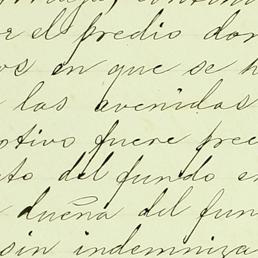 r el predio do
os en que se h
las avenidas
otivo fuere pre
to del fundo e
dueña del fun
sin indemniza